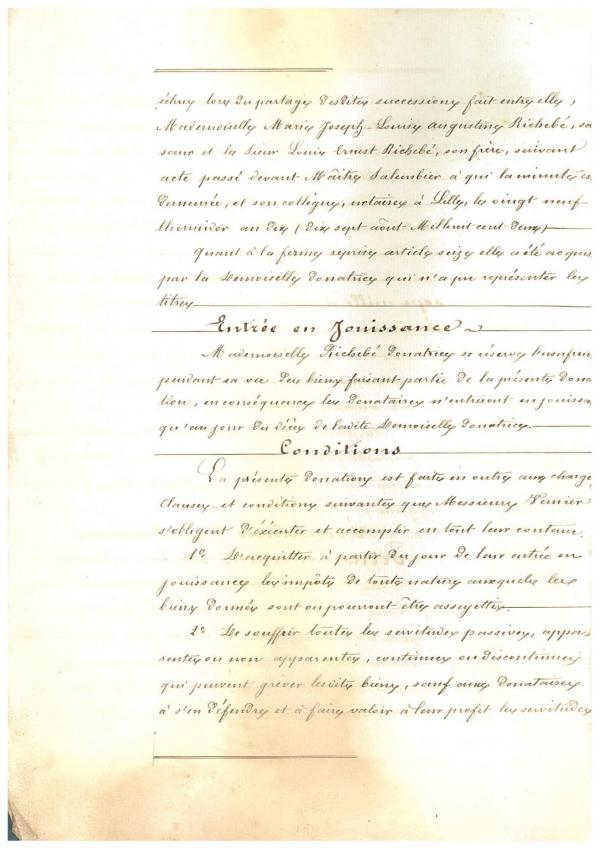 échus lors du partage desdites successions fait entre elle,
Mademoiselle Marie Joseph Louise Augustine Richebé, sa
sœur et le sieur Louis Ernest Richebé, son frère, suivant
acte passé devant Maître Salembier à qui la minute es
demeurée, et son collègue, notaires à Lille, le vingt neuf
thermidor an dix (dix sept août Mil huit cent deux)
Quant à la ferme reprise article seize elle a été acquis
par la Demoiselle donatrice qui n'a pu représenter les
titres
Entrée en Jouissance
Mademoiselle Richebé donatrice se réserve l'usufrui
pendant sa vie des biens faisant partie de la présente dona
tion, en conséquence les donataires n'entreront en jouissan
qu'au jour du décès de ladite Demoiselle donatrice.
Conditions
La présente donation est faite en outre aux charge
clauses et conditions suivantes que Messieurs Vernier
s'obligent d'exécuter et accomplir en tout leur contenu.
1° D'acquitter à partir du jour de leur entrée en
jouissance les impôts de toute nature auxquels les
biens donnés sont ou pourront être assujettis.
2° De souffrir toutes les servitudes passives, appa
rentes ou non apparentes, continues ou discontinues
qui peuvent grever lesdits biens, sauf aux donataires
à s'en défendre et à faire valoir à leur profit les servitudes